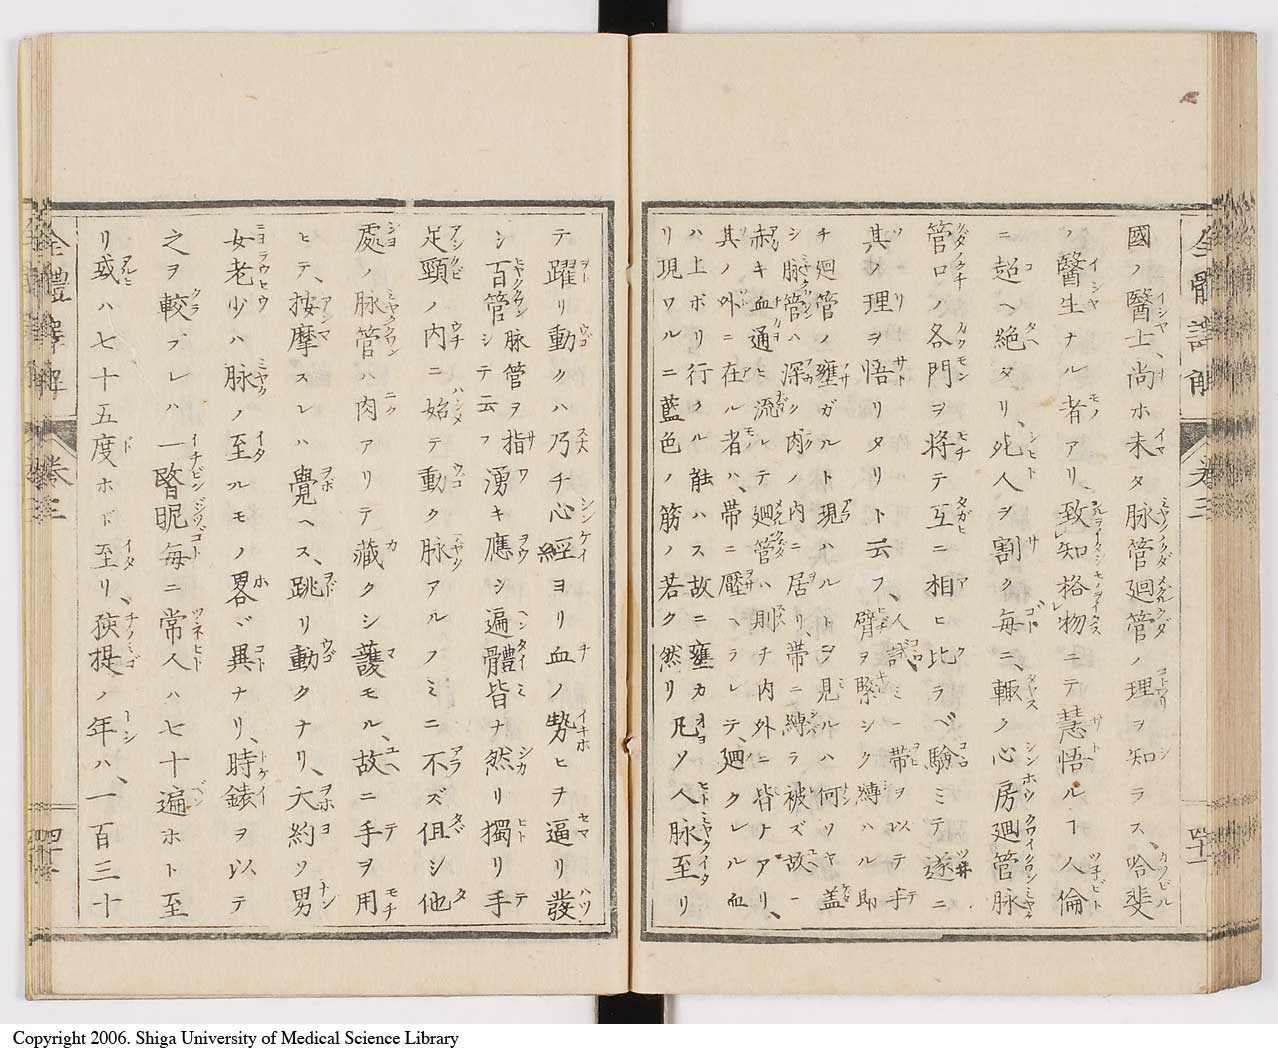 國ノ醫士、尚ホ未タ脉管廻管ノ理ヲ知ラス、哈斐
ノ醫生ナル者アリ、致知格物ニテ慧悟ルヿ人倫
ニ超ヘ絶タリ、死人ヲ割ク毎ニ、輙ク心房廻管脉
管口ノ各門ヲ将テ互ニ相ヒ比ヲベ驗ミテ遂ニ
其ノ理ヲ悟リタリト云フ、人試ミニ帯ヲ以テ手
臂ヲ緊シク縛ハル即
チ廻管ノ壅ガルト現ハルトヲ見ルハ何ソヤ蓋
シ脉管ハ深ク肉ノ内ニ居リ、帯ニ縛ラ被ズ故ニ
赤キ血通ヒ流レテ廻管ハ則チ内外ニ皆ナアリ、
其ノ外ニ在ル者ハ、帯ニ壓ヘラレテ、廻クレル血
ハ上ボリ行クル能ハス故ニ壅カ
リ現ワルニ藍色ノ筋ノ若ク然リ凡ソ人脉至リ
全體譯解
卷三
四十一
テ躍リ動クハ乃チ心經ヨリ血ノ勢ヒヲ逼リ發
シ百管脉管ヲ指シテ云フ湧キ應シ遍體皆ナ然リ獨リ手
足頸ノ内ニ始テ動ク脉アルノミニ不ズ伹シ他
處ノ脉管ハ肉アリテ藏クシ護モル、故ニ手ヲ用
ヒテ、按摩スレハ覺ヘス、跳リ動クナリ、大約ソ男
女老少ハ脉ノ至ルモノ畧ボ異ナリ、時錶ヲ以テ
之ヲ較ブレハ一瞖眤毎ニ常人ハ七十遍ホト至
リ或ハ七十五度ホド至リ、孩提ノ年ハ、一百三十
全體譯解
卷三